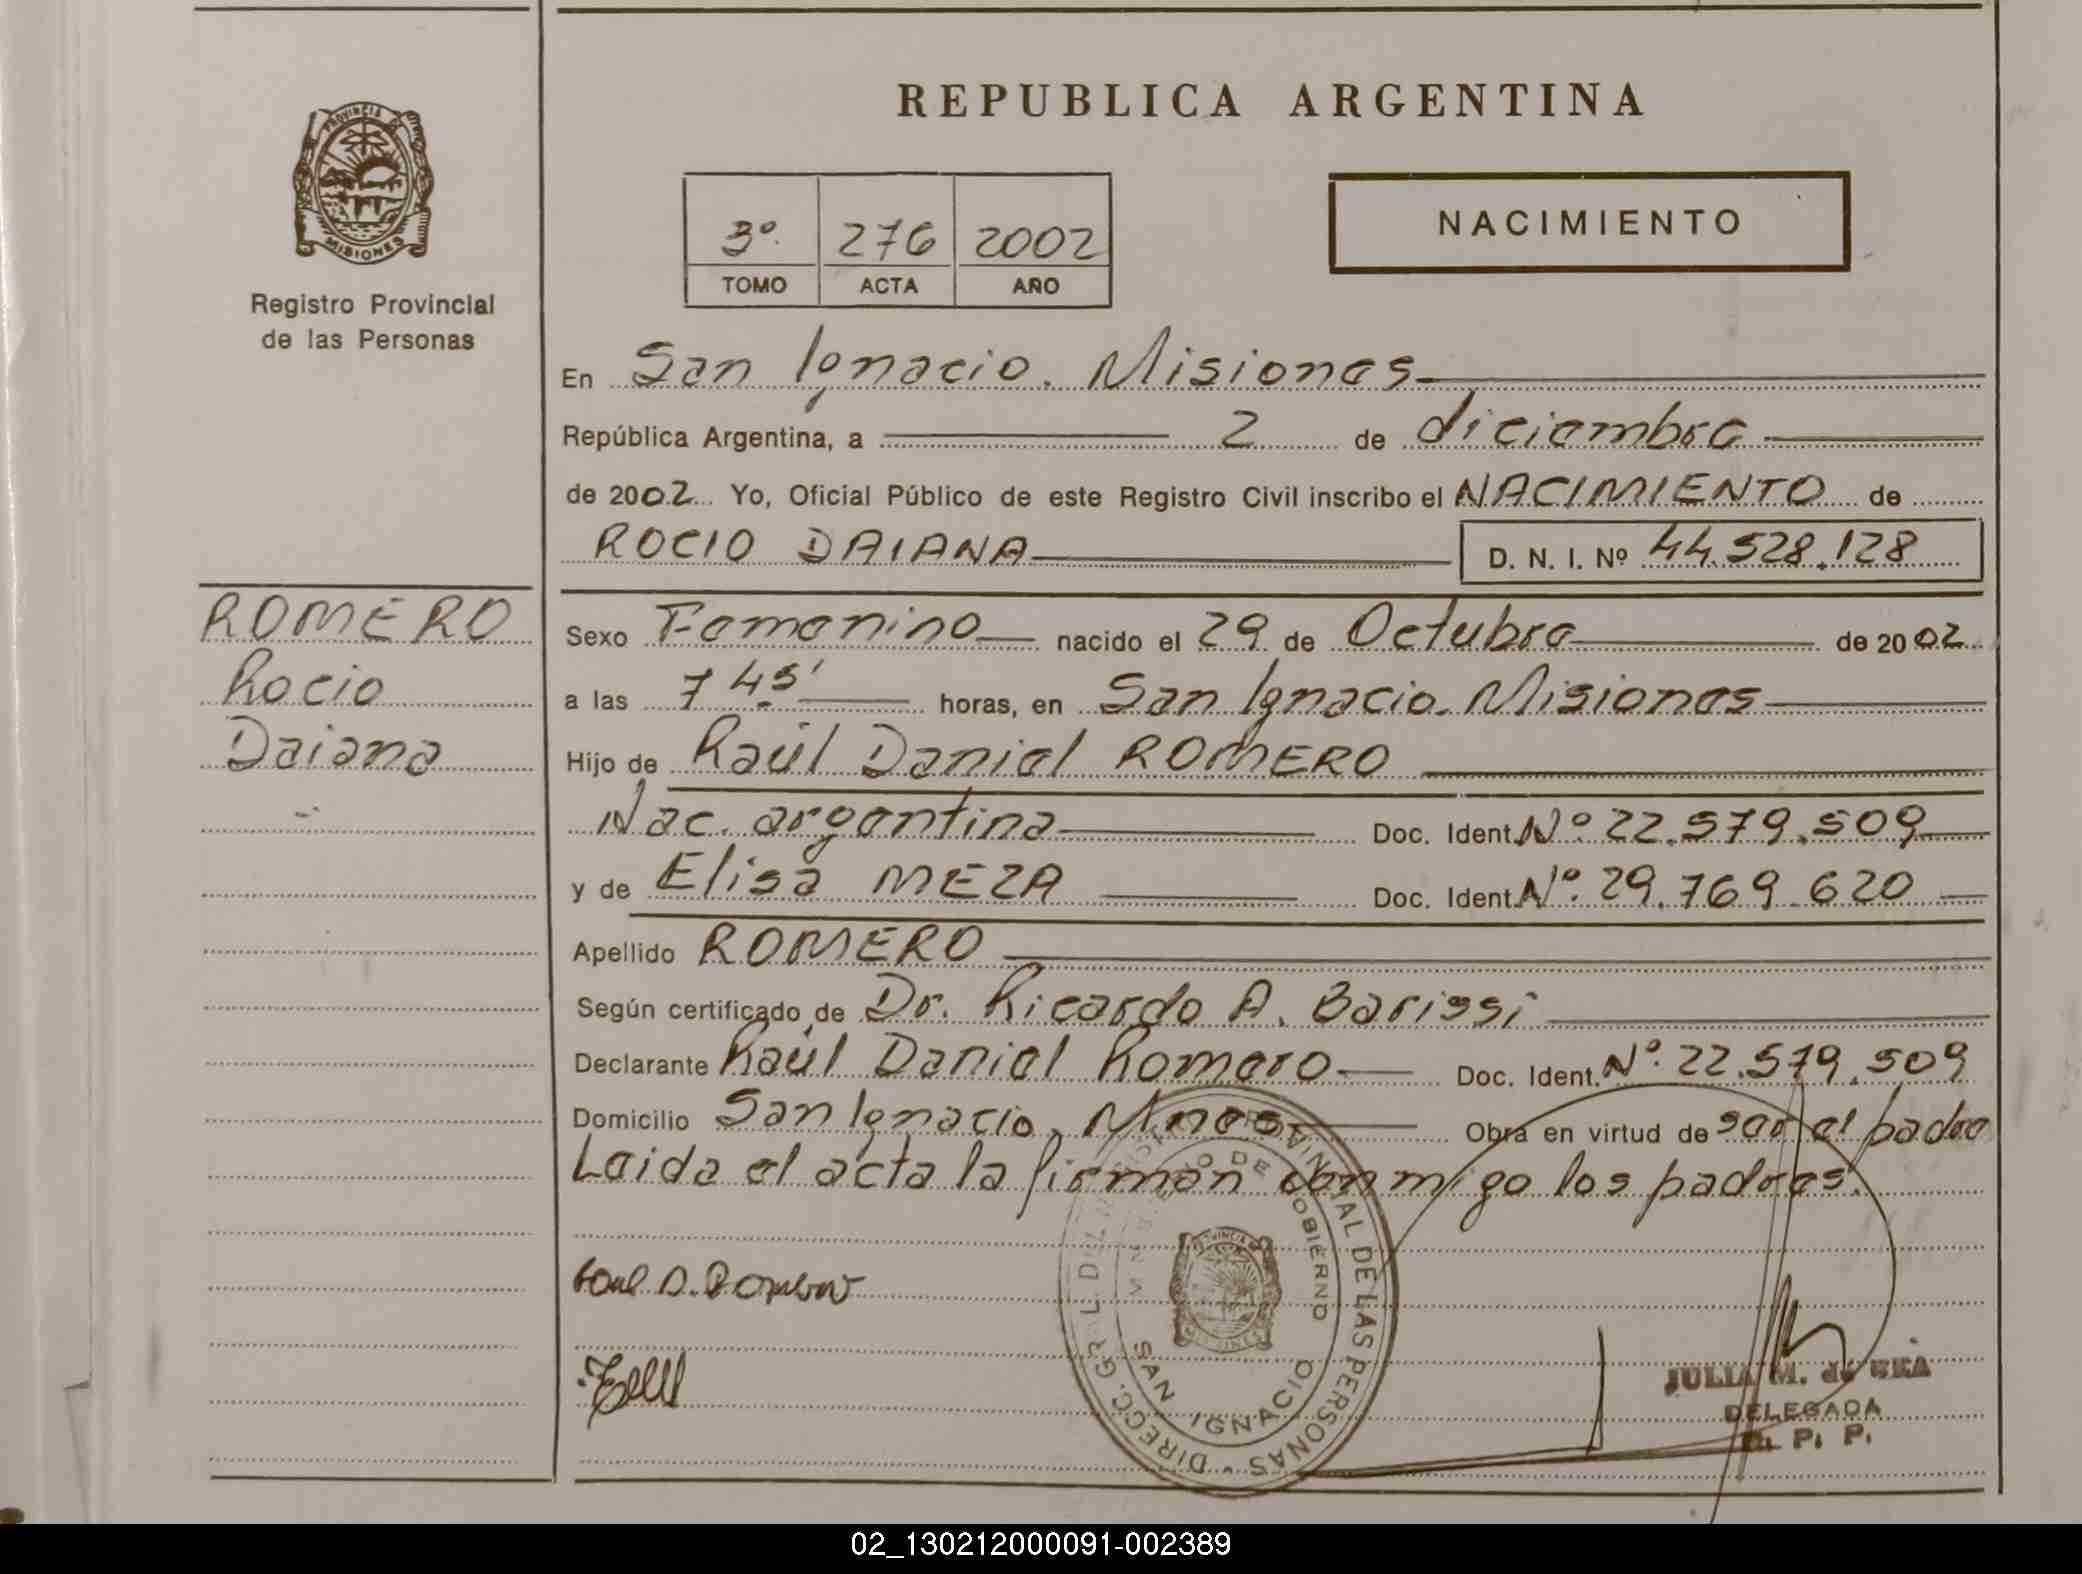 REPUBLICA ARGENTINA
PROVINCIA DE MISIONES
Registro Provincial
de las Personas
3º 276 2002
TOMO ACTA AÑO
NACIMIENTO
En San Ignacio. Misiones
República Argentina, a 2 de diciembre
de 2002 Yo, Oficial Público de este Registro Civil inscribo el NACIMIENTO de
ROCIO DAIANA D. N. I. Nº 44.528.128
ROMERO
Rocio
Daiana
Sexo Femenino nacido el 29 de Octubre de 2002
a las 7 45' horas, en San Ignacio. Misiones
Hijo de Raúl Daniel ROMERO
Nac. argentina Doc. Ident. Nº. 22.579.509
y de Elisa MEZA Doc. Ident. Nº. 29.769.620
Apellido ROMERO
Según certificado de Dr. Ricardo A. Barissi
Declarante Raúl Daniel Romero Doc. Ident. Nº. 22.579.509
Domicilio San Ignacio, Mnes. Obra en virtud de ser el padre
Leida el acta la firman conmigo los padres.
DIRECC. GRAL. DEL REGISTRO PROVINCIAL DE LAS PERSONAS
MINISTERIO DE GOBIERNO
PROVINCIA DE MISIONES
SAN IGNACIO
JULIA M. de REA
DELEGADA
R. P. P.
02_130212000091-002389